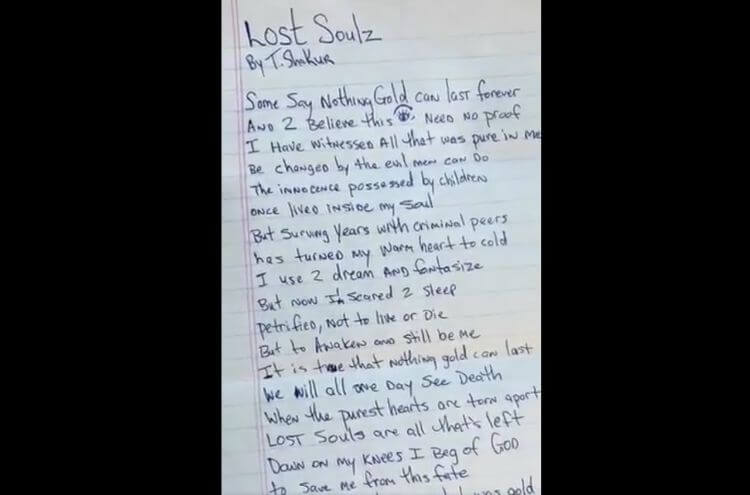 Lost Soulz
By T. Shakur
Some Say Nothing Gold can last forever
AND 2 Believe this 👁 Need No proof
I Have witnessed All that was pure in me
Be changed by the evil men can Do
The innocence possessed by children
once lived inside my Soul
But Surving Years with criminal peers
has turned my warm heart to cold
I use 2 dream AND fantasize
But now I'm Scared 2 Sleep
petrified, Not to live or Die
But to Awaken and still be Me
It is true that nothing gold can last
We will all one Day See Death
When the purest hearts are torn apart
LOST Souls are all that's left
Down on my Knees I Beg of GOD
to Save me from this fate